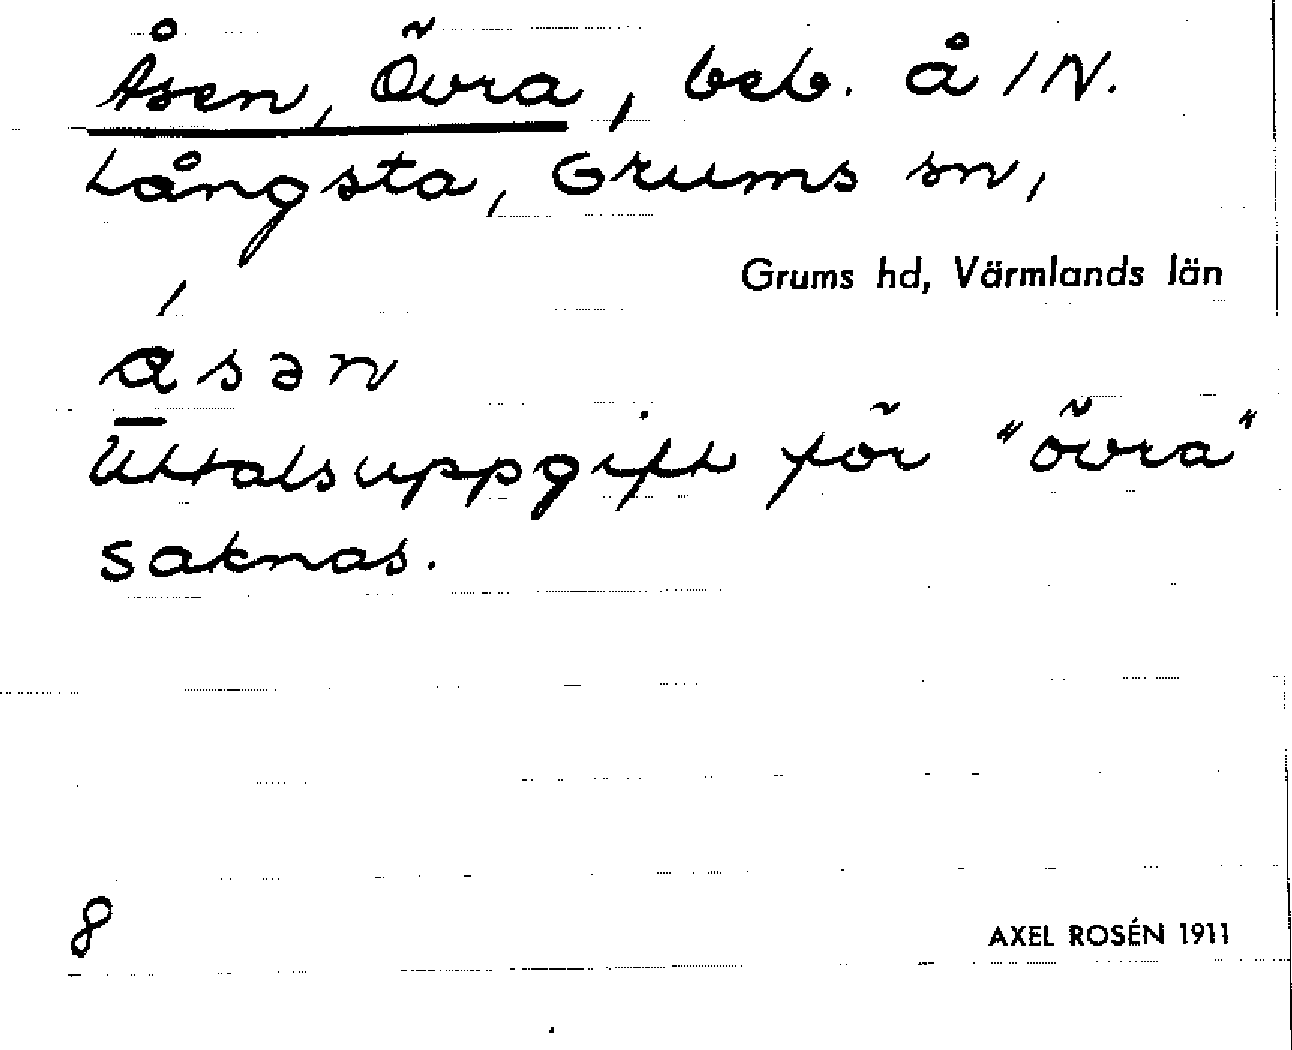 Åsen, Övra, beb. å 1/N.
Långsta, Grums sn,
Grums hd, Värmlands län
Uttalsuppgift för "övra"
saknas.
8
AXEL ROSÉN 1911